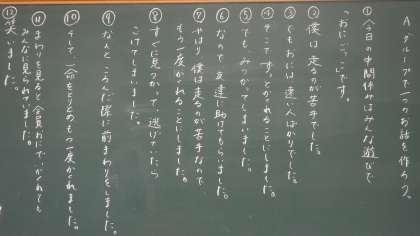 A グループで一つのお話を作ろう。
①今日の中間休みはみんな遊びで
「おにごっこ」です。
②僕は走るのが苦手でした。
③しかもおには速い人ばかりでした。
④そこで、ずっとかくれることにしました。
⑤でも、みつかってしまいました。
⑥なので、友達に助けてもらいました。
⑦やはり、僕は走るのが苦手なので、
もう一度かくれることにしました。
⑧すぐに見つかって、逃げていたら
こけてしまいました。
⑨なんと、ころんだ後に前まわりをしました。
⑩そして一命をとりとめもう一度かくれました。
⑪まわりを見ると全員おにで、かくれても
みんなに見られていました。
⑫笑いました。